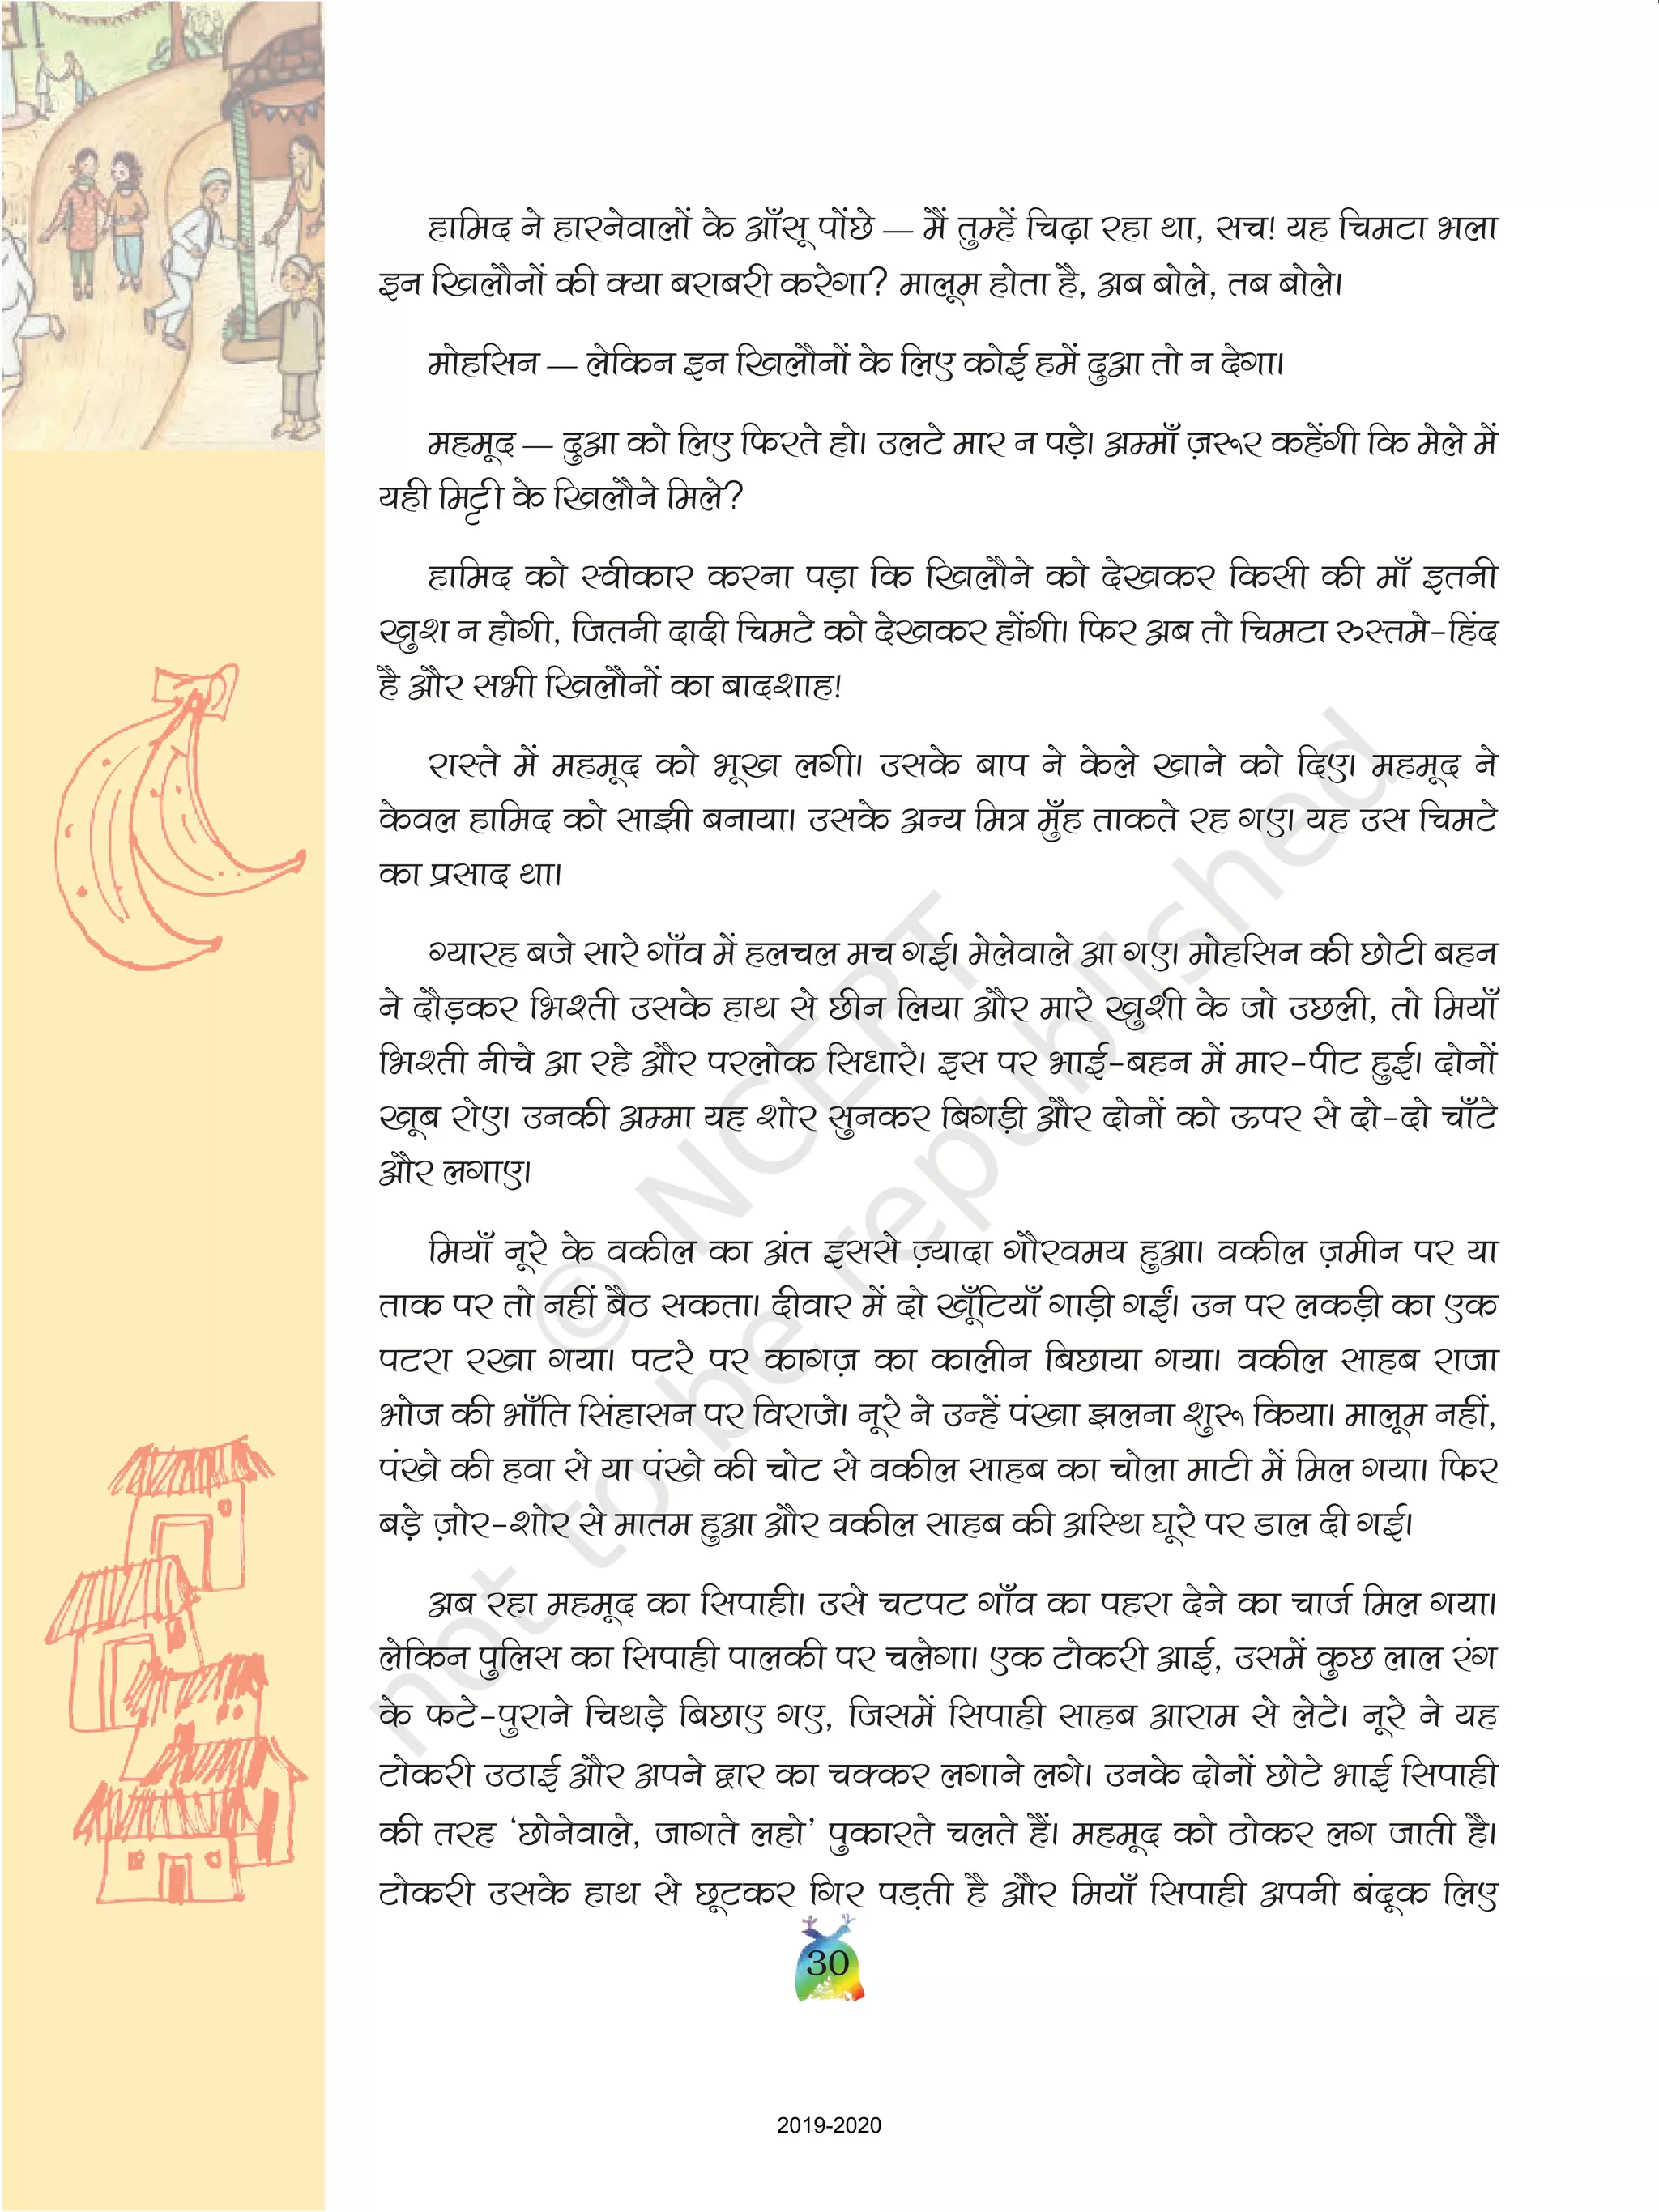 हामिद ने हारनेवालों के आँसू पोंछे — मैं तुम्हें चिढ़ा रहा था, सच! यह चिमटा भला
इन खिलौनों की क्या बराबरी करेगा? मालूम होता है, अब बोले, तब बोले।
मोहसिन — लेकिन इन खिलौनों के लिए कोई हमें दुआ तो न देगा।
महमूद — दुआ को लिए फिरते हो। उलटे मार न पड़े। अम्माँ ज़रूर कहेंगी कि मेले में
यही मिट्टी के खिलौने मिले?
हामिद को स्वीकार करना पड़ा कि खिलौने को देखकर किसी की माँ इतनी
खुश न होगी, जितनी दादी चिमटे को देखकर होंगी। फिर अब तो चिमटा रुस्तमे-हिंद
है और सभी खिलौनों का बादशाह!
रास्ते में महमूद को भूख लगी। उसके बाप ने केले खाने को दिए। महमूद ने
केवल हामिद को साझी बनाया। उसके अन्य मित्र मुँह ताकते रह गए। यह उस चिमटे
का प्रसाद था।
ग्यारह बजे सारे गाँव में हलचल मच गई। मेलेवाले आ गए। मोहसिन की छोटी बहन
ने दौड़कर भिश्ती उसके हाथ से छीन लिया और मारे खुशी के जो उछली, तो मियाँ
भिश्ती नीचे आ रहे और परलोक सिधारे। इस पर भाई-बहन में मार-पीट हुई। दोनों
खूब रोए। उनकी अम्मा यह शोर सुनकर बिगड़ी और दोनों को ऊपर से दो-दो चाँटे
और लगाए।
मियाँ नूरे के वकील का अंत इससे ज़्यादा गौरवमय हुआ। वकील ज़मीन पर या
ताक पर तो नहीं बैठ सकता। दीवार में दो खूँटियाँ गाड़ी गईं। उन पर लकड़ी का एक
पटरा रखा गया। पटरे पर कागज़ का कालीन बिछाया गया। वकील साहब राजा
भोज की भाँति सिंहासन पर विराजे। नूरे ने उन्हें पंखा झलना शुरू किया। मालूम नहीं,
पंखे की हवा से या पंखे की चोट से वकील साहब का चोला माटी में मिल गया। फिर
बड़े ज़ोर-शोर से मातम हुआ और वकील साहब की अस्थि घूरे पर डाल दी गई।
अब रहा महमूद का सिपाही। उसे चटपट गाँव का पहरा देने का चार्ज मिल गया।
लेकिन पुलिस का सिपाही पालकी पर चलेगा। एक टोकरी आई, उसमें कुछ लाल रंग
के फटे-पुराने चिथड़े बिछाए गए, जिसमें सिपाही साहब आराम से लेटे। नूरे ने यह
टोकरी उठाई और अपने द्वार का चक्कर लगाने लगे। उनके दोनों छोटे भाई सिपाही
की तरह ‘छोनेवाले, जागते लहो’ पुकारते चलते हैं। महमूद को ठोकर लग जाती है।
टोकरी उसके हाथ से छूटकर गिर पड़ती है और मियाँ सिपाही अपनी बंदूक लिए
30
2019-2020
© NCERT
not to be republished